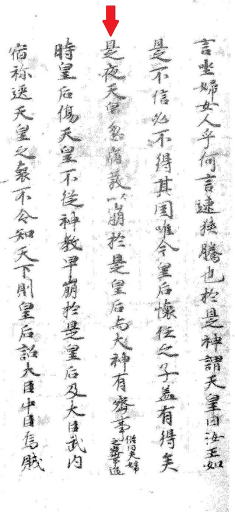 言唑婦女人乎何言速狹騰也於是神謂天皇曰汝王如
是不信必不得其国唯今皇后懐任之子蓋有得矣
是夜天皇忽病發以崩於是皇后与大神有密事俗曰夫婦之密事通
時皇后傷天皇不從神教早崩於是皇后及大臣武内
宿祢送天皇之喪不令知天下則皇后詔大臣中臣烏賊